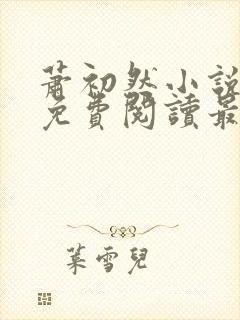 蕭初然小說
免費閱讀最
葉雪兒